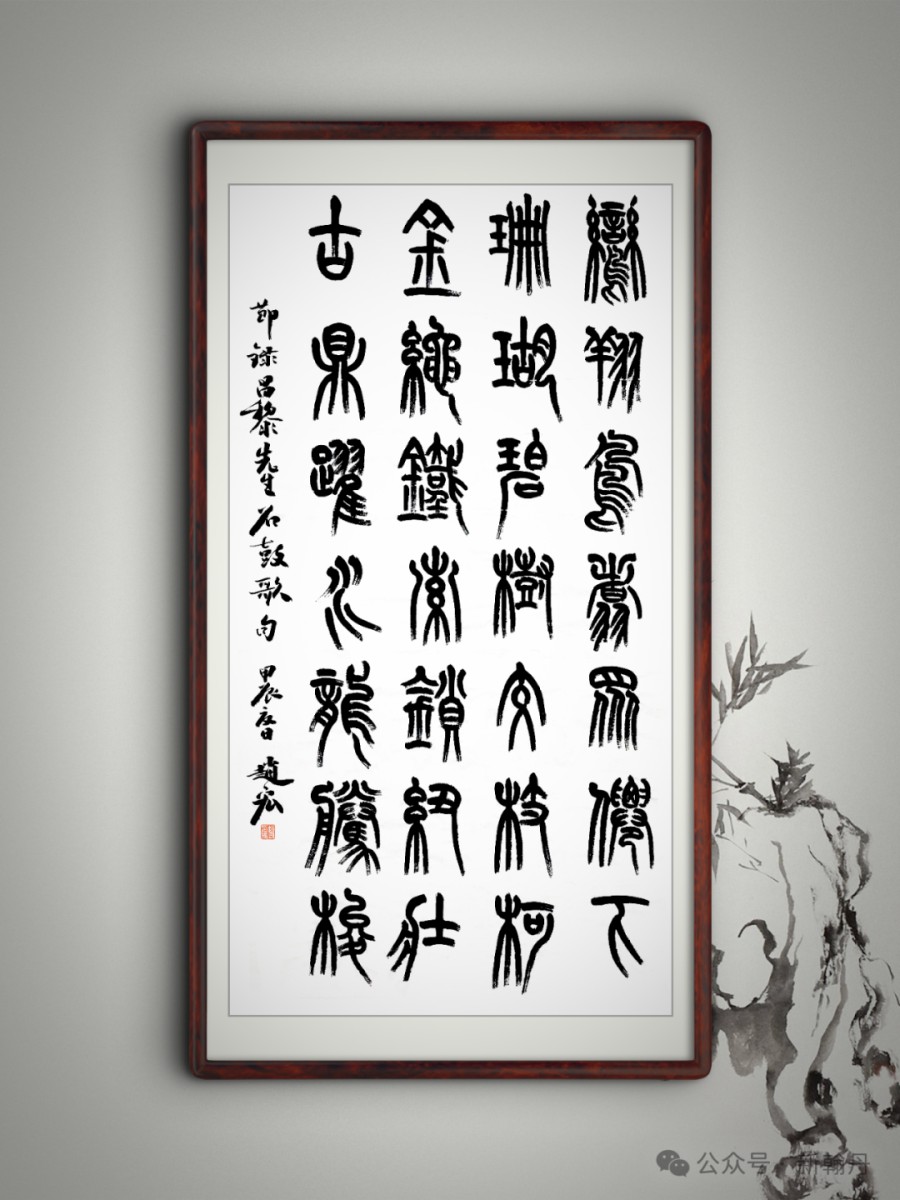 鸞翔鳳翥眾僊下
珊瑚碧樹交枝柯
金繩鐵索鎖紐壯
古鼎躍水龍騰梭
節錄昌黎先生石鼓歌句 甲辰春 趙宏
公众号 · 新翰丹